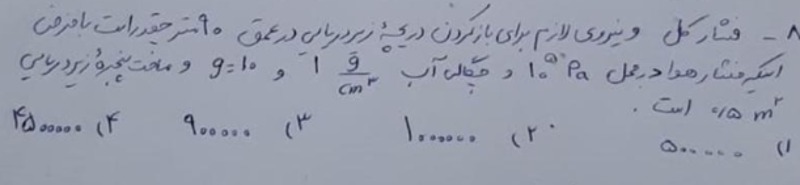 ۸ - فشار کل و نیروی لازم برای باز کردن دریچهٔ زیردریایی در عمق ۹۰ متر چقدر است با فرض
اینکه فشار هوا در محل 10⁵ Pa و چگالی آب 1 g/cm³ و g=10 و مساحت پنجرهٔ زیردریایی
۰/۵ m² است .
۱) ۵۰۰۰۰۰ ۲) ۱۰۰۰۰۰۰ ۳) ۹۰۰۰۰۰ ۴) ۴۵۰۰۰۰۰